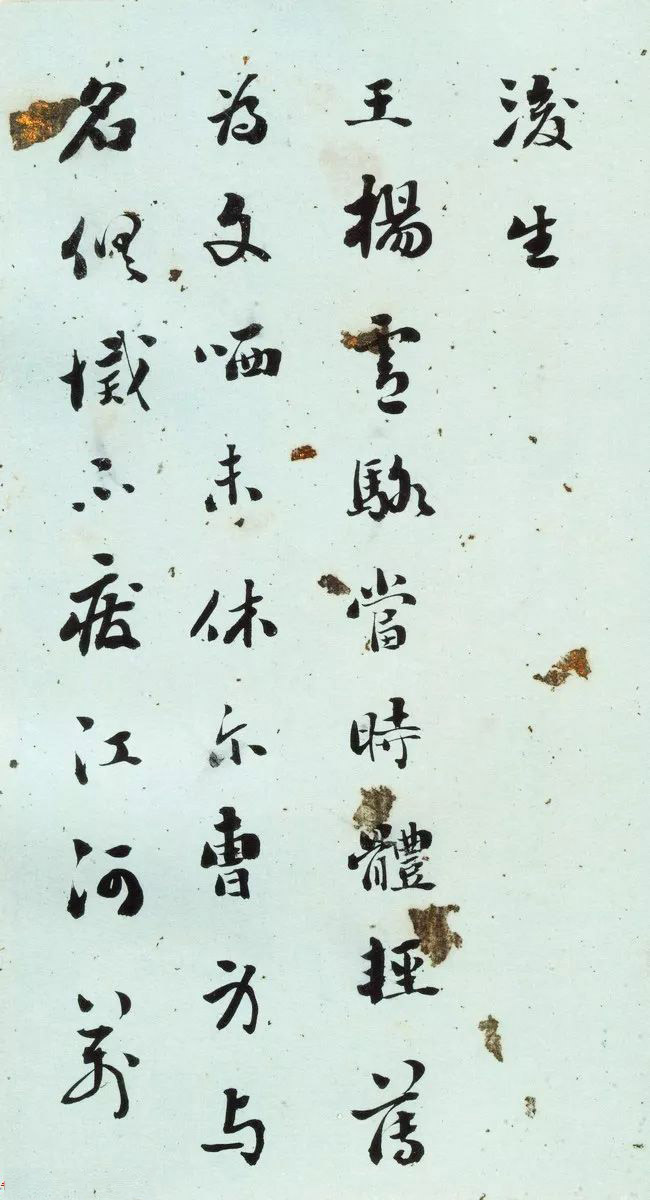 後生
王楊盧駱當時體輕薄
為文哂未休尔曹身与
名俱滅不廢江河萬